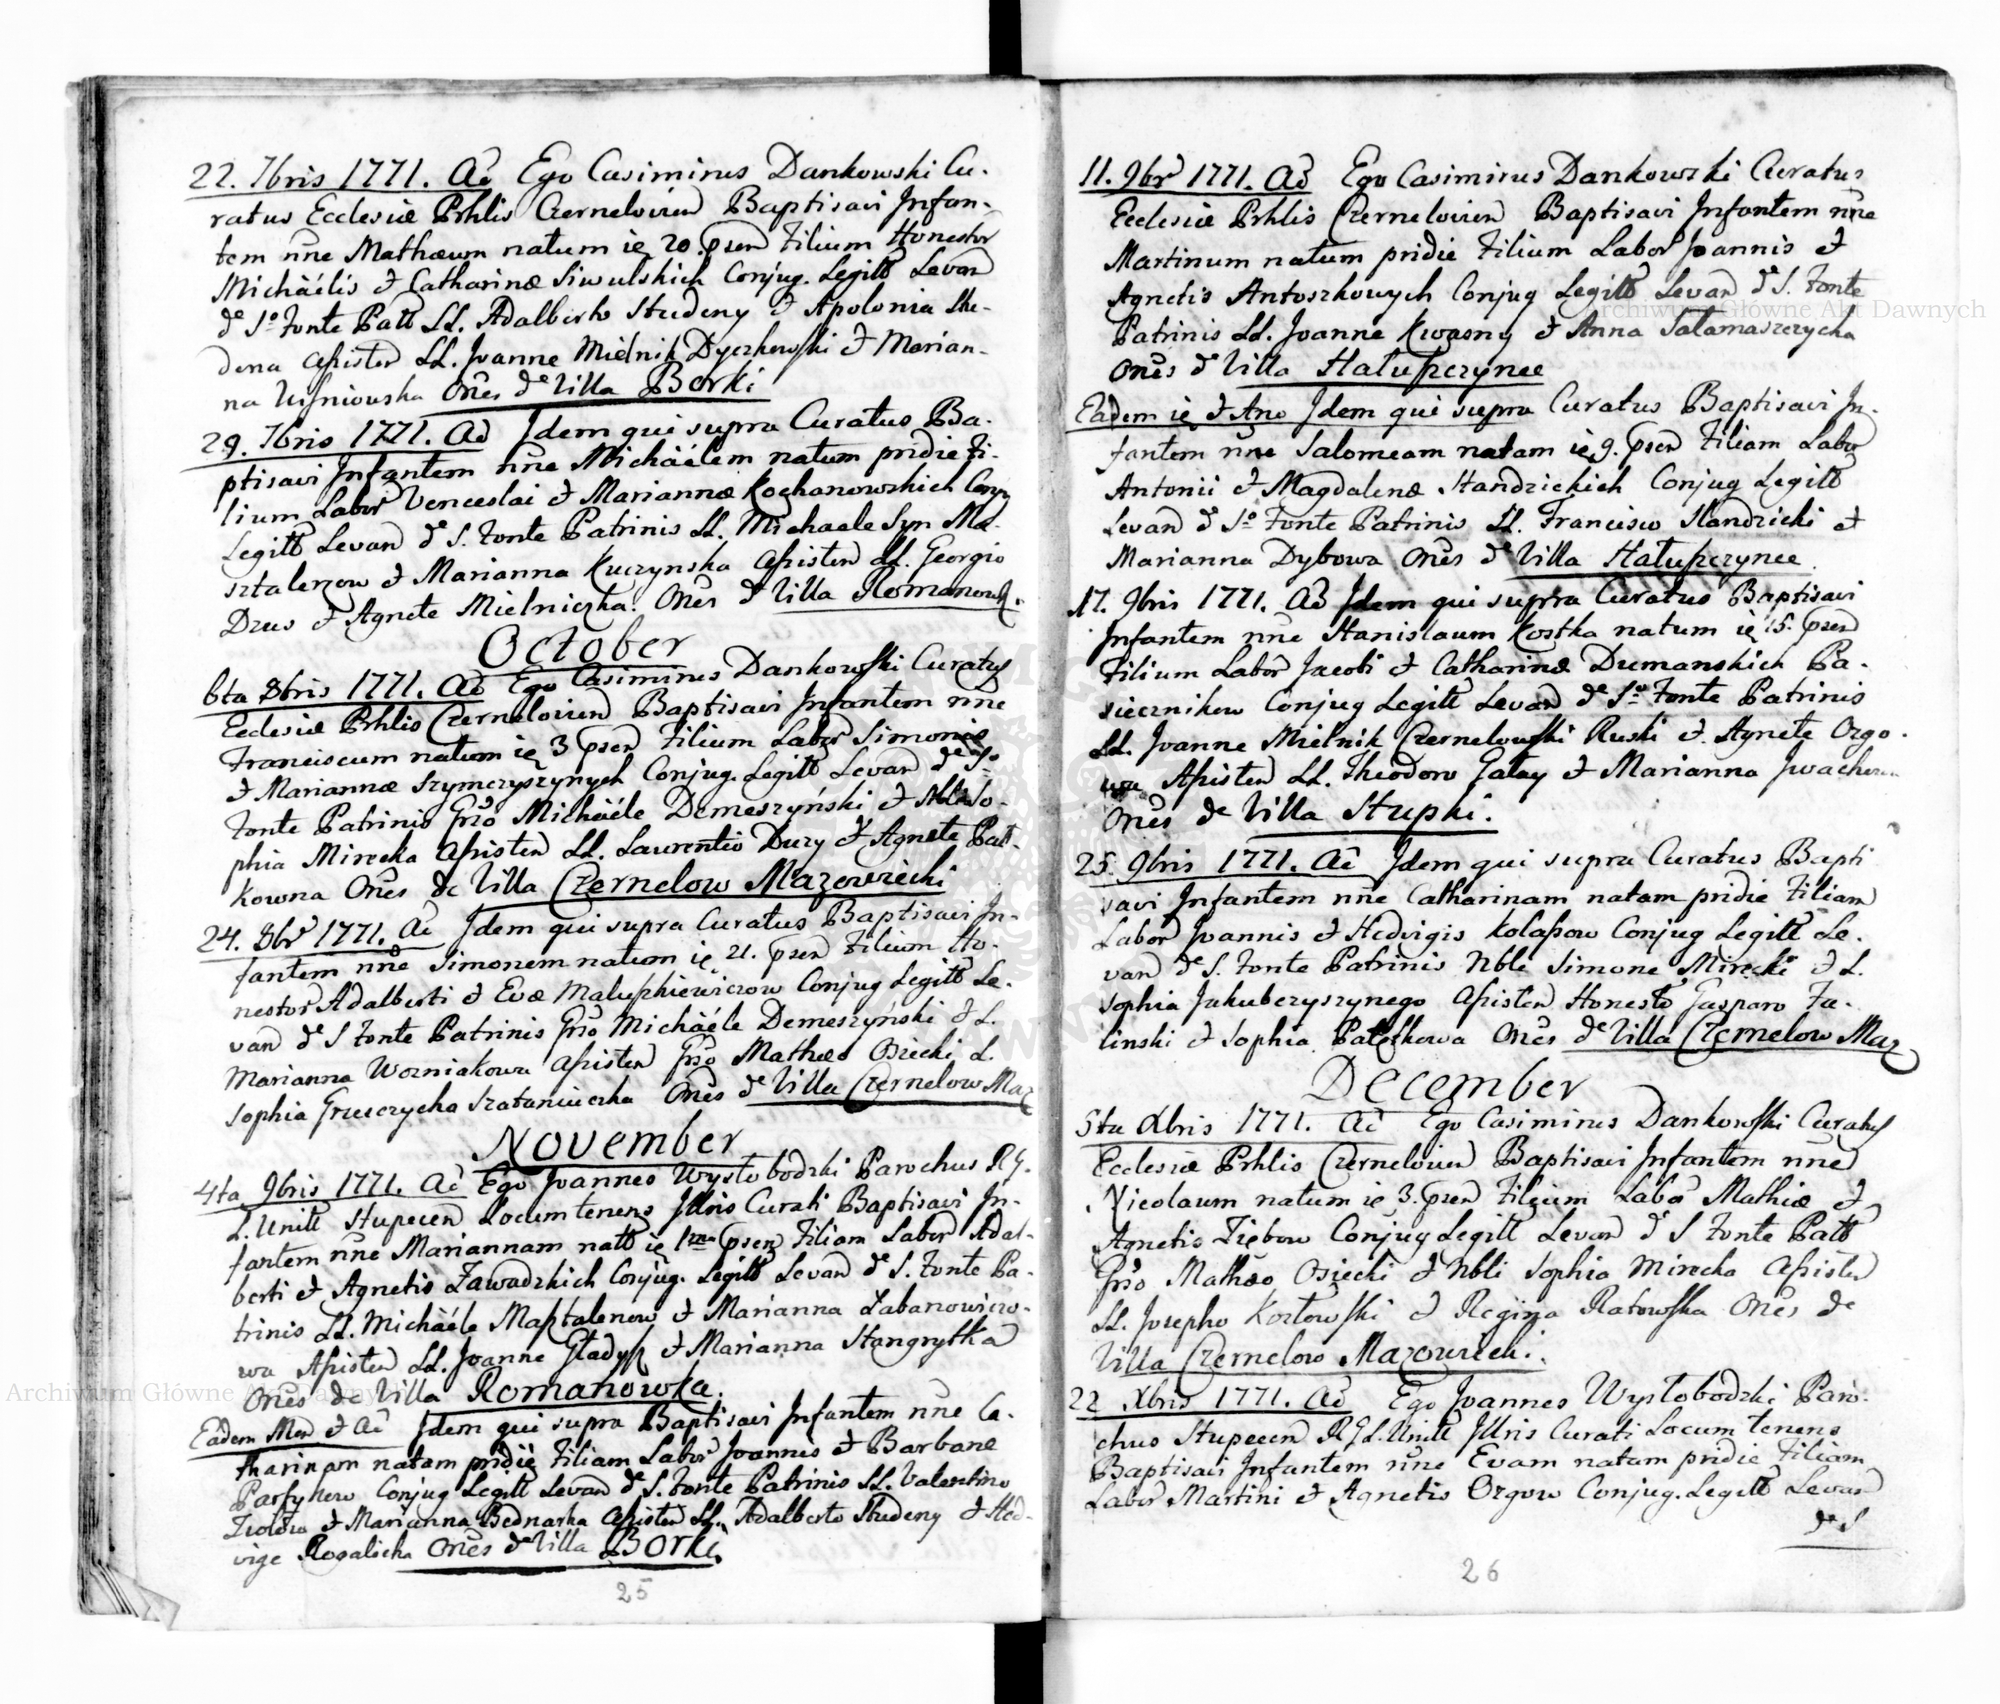 22. 7bris 1771. Aõ Ego Casimirus Dankowski Cu-
ratus Ecclesiæ Prhlis Czernelovien Baptisavi Infan-
tem nñe Mathæum natum ie 20. psen Filium Honestor
Michäelis & Catharinæ Siwulskich Conjug. Legitt Levan
de So Fonte Patt LL. Adalberto Studeny & Apolonia Stu-
dena Assisten LL. Joanne Mielnik Dyczkowski & Marian-
na Wisniowska Oñes de Villa Borki
29. 7bris 1771. Aõ Idem qui supra Curatus Ba-
ptisavi Infantem nñe Michäelem natum pridie Fi-
lium Labor Venceslai & Mariannæ Kochanowskich Conju
Legitt Levan de S. Fonte Patrinis LL. Michaele Syn Ma-
sztalerzow & Marianna Kuczynska Assisten LL. Georgio
Dzus & Agnete Mielniczka. Oñes de Villa Romanowk.
October
6ta 8bris 1771. Aõ Ego Casimirus Dankowski Curatus
Ecclesiæ Prhlis Czernelovien Baptisavi Infantem nñe
Franciscum natum ie 3 psen Filium Labor Simonis
& Mariannæ Szymczyszynych Conjug. Legitt Levan de So
Fonte Patrinis Gñso Michäele Demeszyński & Nbli So-
phia Mirecka Assisten LL. Laurentio Duzy & Agnete Pał-
kowna Oñes de Villa Czernelow Mazowiecki
24. 8br 1771. Aõ Idem qui supra Curatus Baptisavi In-
fantem nñe Simonem natum ie 21. psen Filium Ho-
nestor Adalberti & Evæ Maluszkiewiczow Conjug Legitt Le-
van de S Fonte Patrinis Gñso Michäele Demeszyński & L.
Marianna Wozniakowa Assisten Gñso Mathæo Osiecki L.
Sophia Grzesczycha Szataniuczka Oñes de Villa Czernelow Maz
November
4ta 9bris 1771. Aõ Ego Joannes Wysłobodzki Parochus R.G.
L. Unitt Stupecen Locumtenens Illris Curati Baptisavi In-
fantem nñe Mariannam natt ie 1ma psen Filiam Labor Adal-
berti & Agnetis Zawadzkich Conjug. Legitt Levan de S. Fonte Pa-
trinis LL. Michäele Masztalerzow & Marianna Łabanowiczo-
wa Assisten LL. Joanne Gładysz & Marianna Stangrytka
Oñes de Villa Romanowka.
Eadem Men & Aõ Idem qui supra Baptisavi Infantem nñe Ca-
tharinam natam pridie Filiam Labor Joannis & Barbaræ
Parfykow Conjug Legitt Levan de S. Fonte Patrinis LL. Valentino
& Marianna Bednarka Assisten LL. Adalberto Studeny & Hed-
vige Rogalicha Oñes de Villa Borki.
25
11. 9br 1771. Aõ Ego Casimirus Dankowski Curatus
Ecclesiæ Prhlis Czernelovien Baptisavi Infantem nñe
Martinum natum pridie Filium Labor Joannis &
Agnetis Antoszkowych Conjug Legitt Levan de S. Fonte
Patrinis LL. Joanne Kwasny & Anna Salamaszczycha
Oñes de Villa Hałuszczynce
Eadem ie & Ano Idem qui supra Curatus Baptisavi In-
fantem nñe Salomeam natam ie 9. psen Filiam Labor
Antonii & Magdalenæ Handzickich Conjug Legitt
Levan de So Fonte Patrinis LL. Francisco Handzicki et
Marianna Dybowa Oñes de Villa Hałuszczynce.
17. 9bris 1771. Aõ Idem qui supra Curatus Baptisavi
Infantem nñe Stanislaum Kostka natum ie 15. psen
Filium Labor Jacobi & Catharinæ Dumanskich Pa-
siecznikow Conjug Legitt Levan de So Fonte Patrinis
LL. Joanne Mielnik Czernelowski Ruski & Agnete Ozgo-
wa Assisten LL. Theodoro Gałay & Marianna
Oñes de Villa Stupki.
25. 9bris 1771. Aõ Idem qui supra Curatus Bapti
savi Infantem nñe Catharinam natam pridie Filiam
Labor Joannis & Hedvigis Kolassow Conjug Legitt Le-
van de S. Fonte Patrinis Nble Simone Mirecki & L.
Sophia Jakubczyszynego Assisten Honesto Gasparo Fa-
linski & Sophia Pałaszkowa Oñes de Villa Czernelow Maz
December
5ta Xbris 1771. Aõ Ego Casimirus Dankowski Curatus
Ecclesiæ Prhlis Czernelovien Baptisavi Infantem nñe
Nicolaum natum ie 3. psen Filium Labor Mathiæ &
Agnetis Ziębow Conjug Legitt Levan de S Fonte Patt
Gñso Mathæo Osiecki & Nbli Sophia Mirecka Assisten
LL. Josepho Kozłowski & Regina Ratowska Oñes de
Villa Czernelow Mazowiecki.
22 Xbris 1771. Aõ Ego Joannes Wysłobodzki Paro-
chus Stupecen R G L. Unitt Illris Curati Locum tenens
Baptisavi Infantem nñe Evam natam pridie Filiam
Labor Martini & Agnetis Ozgow Conjug. Legitt Levan
de S
26
Archiwum Główne Akt Dawnych
Archiwum Główne Akt Dawnych